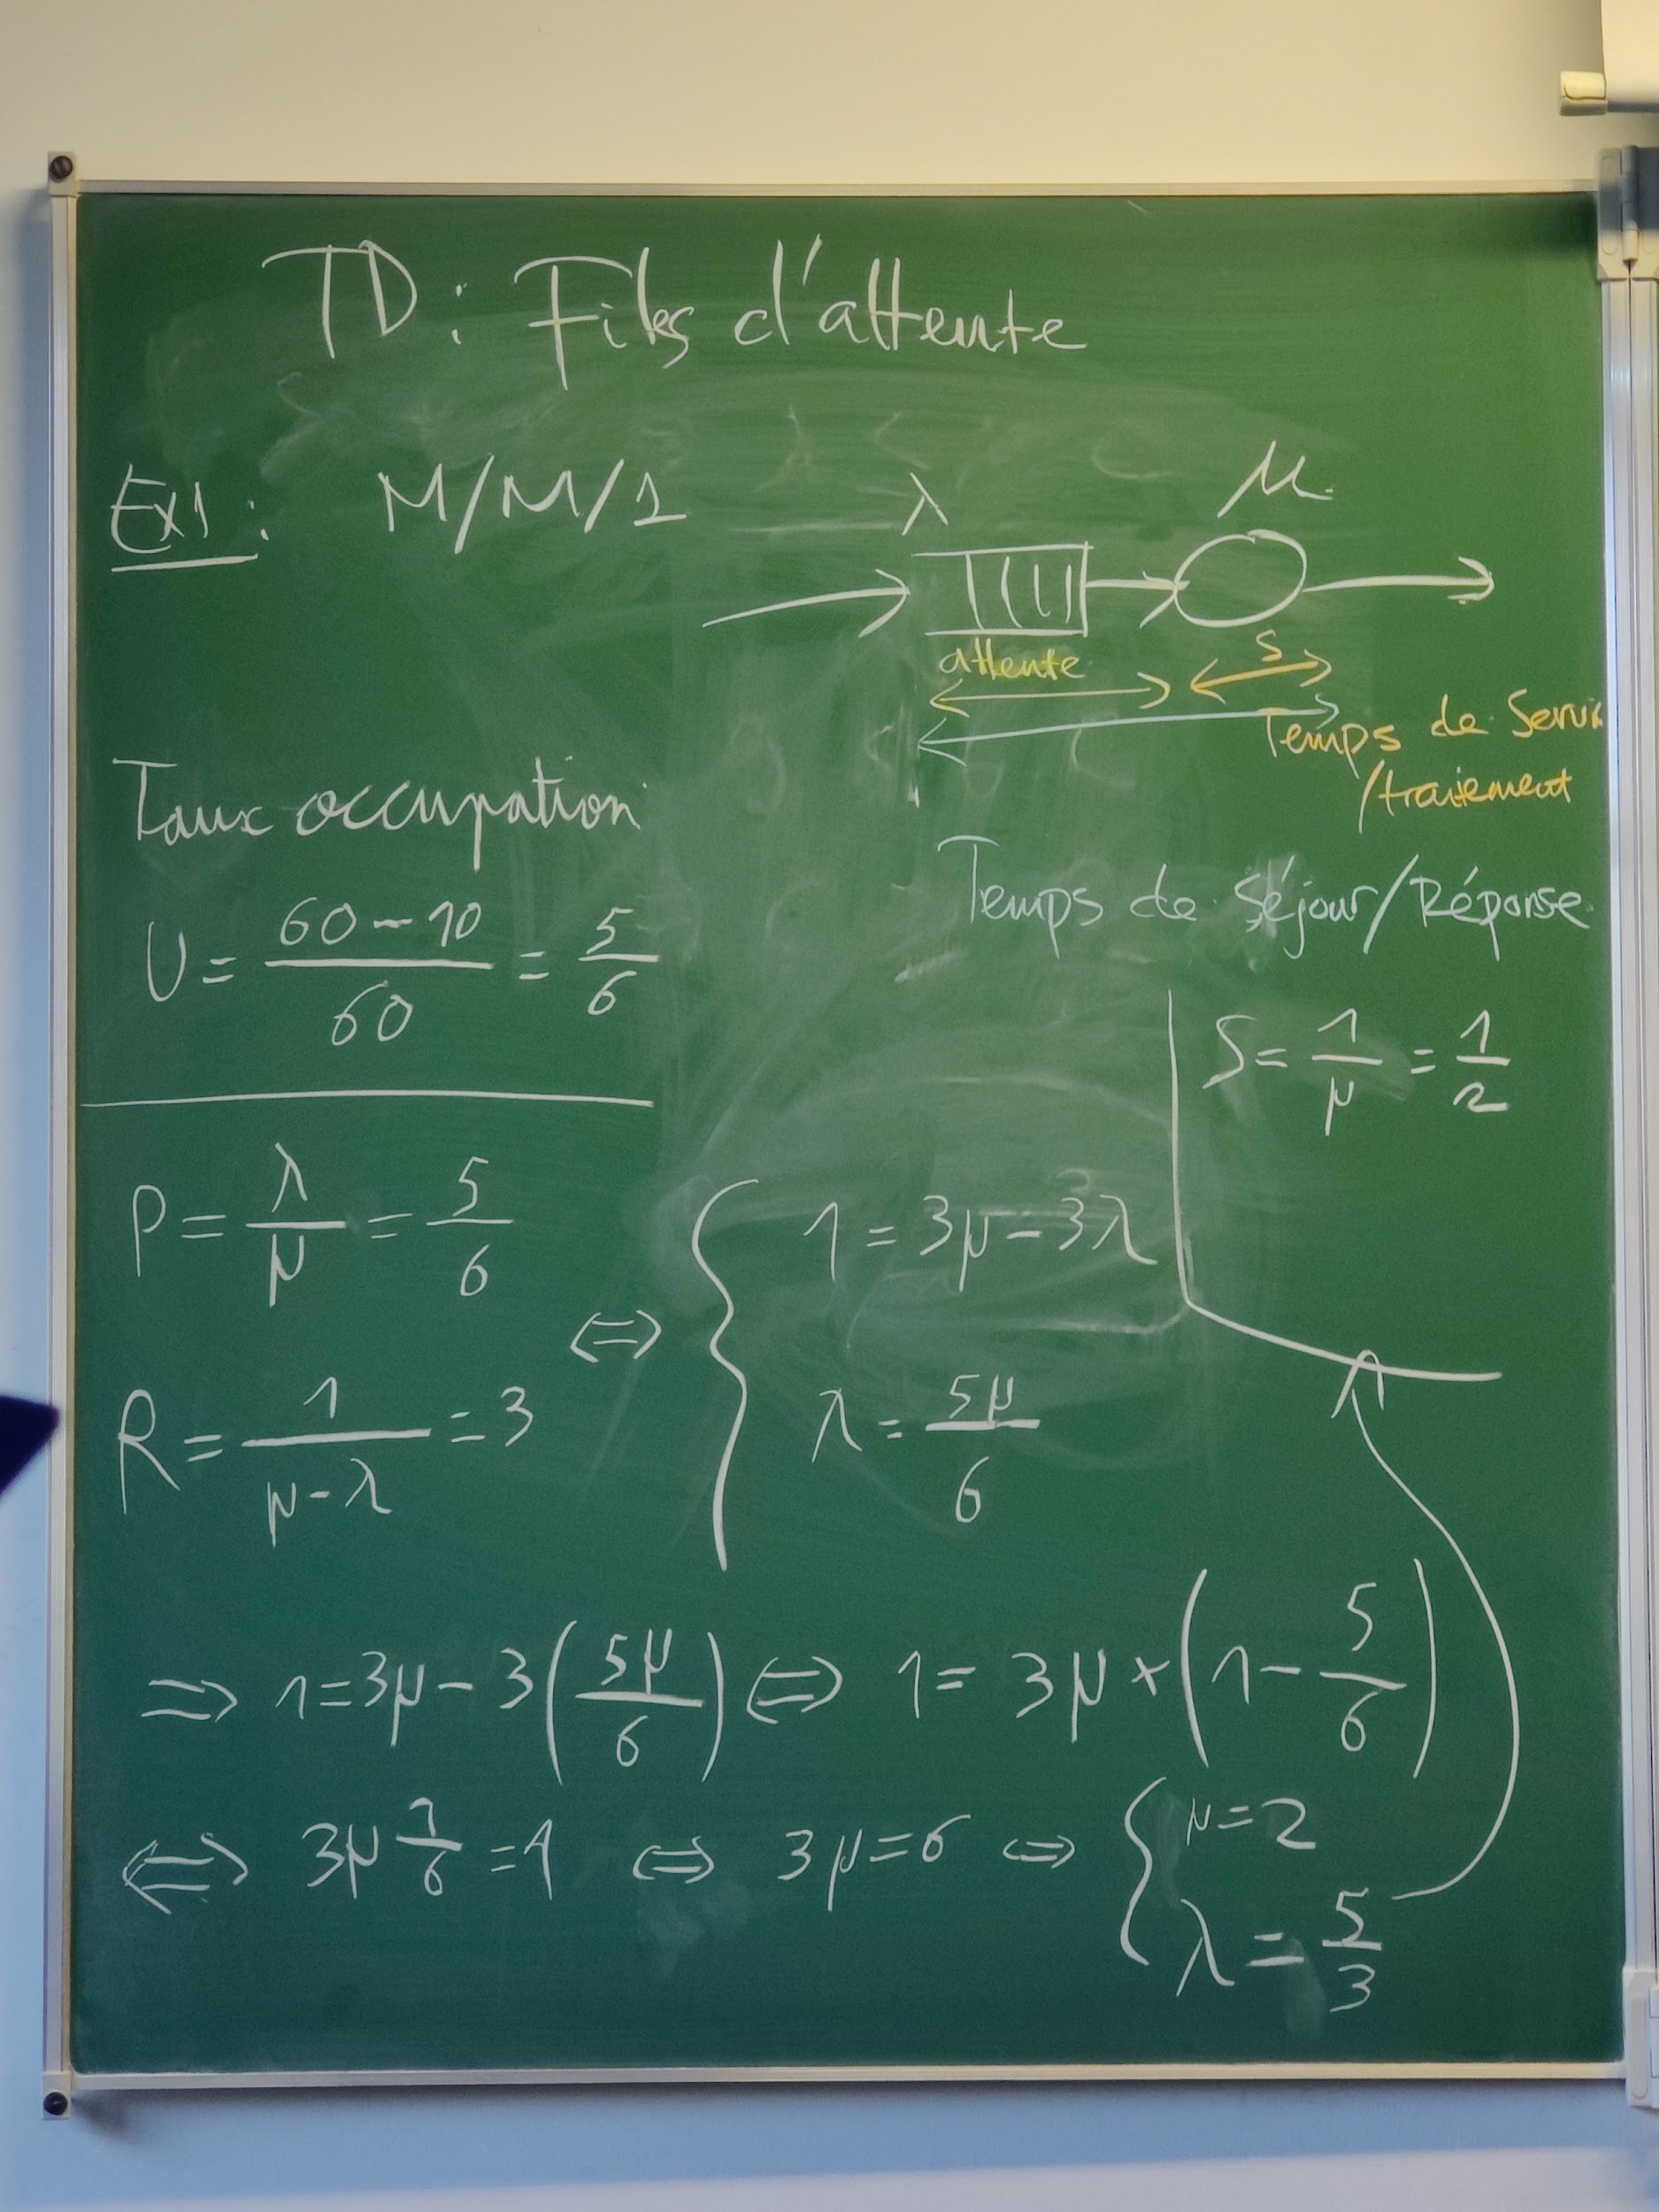 TD : Files d'attente
Ex1 : M/M/1
λ
μ
attente
S
Temps de Servi
/traiement
Temps de Séjour/Réponse
Taux occupation
U = (60 - 10)/60 = 5/6
S = 1/μ = 1/2
P = λ/μ = 5/6
R = 1/(μ - λ) = 3
⇔ { 1 = 3μ - 3λ
λ = 5μ/6
⇒ 1 = 3μ - 3(5μ/6) ⇔ 1 = 3μ × (1 - 5/6)
⇔ 3μ 1/6 = 1 ⇔ 3μ = 6 ⇔ { μ = 2
λ = 5/3